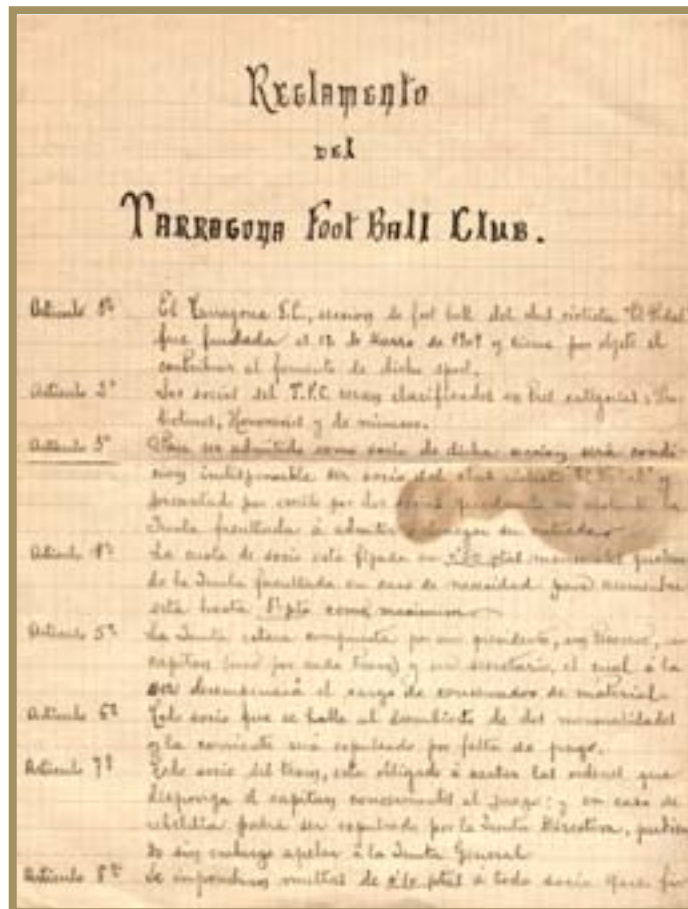 Reglamento
del
Tarragona Foot Ball Club.
Artículo 1º El Tarragona F.C., seccion de foot ball del club ciclista "El Pedal"
fue fundada el 12 de Marzo de 1909 y tiene por objeto el
contribuir al fomento de dicho sport.
Artículo 2º Los socios del T.F.C. seran clasificados en tres categorias:
Honorarios y de número.
Artículo 3º Para ser admitido como socio de dicha seccion será condi-
cion indispensable ser socio del club ciclista y
presentado por escrito por dos socios quedando la
Junta facultada á admitir su entrada
Artículo 4º La cuota de socio está fijada en ptas mensuales quedan-
do la Junta facultada en caso de necesidad para
esta hasta 1 pta como maximum
Artículo 5º La Junta estará compuesta por un presidente, un tesorero, un
capitan (uno por cada team) y un secretario, el cual á la
vez desempeñará el cargo de conservador de material
Artículo 6º Todo socio que se halle al descubierto de dos mensualidades
y la corriente será expulsado por falta de pago.
Artículo 7º Todo socio del team, esta obligado á acatar las ordenes que
disponga el capitan concernientes al juego; y en caso de
rebeldia podrá ser expulsado por la Junta Directiva, pudien-
do sin embargo apelar á la Junta General
Artículo 8º Se impondran multas de ptas á todo socio que